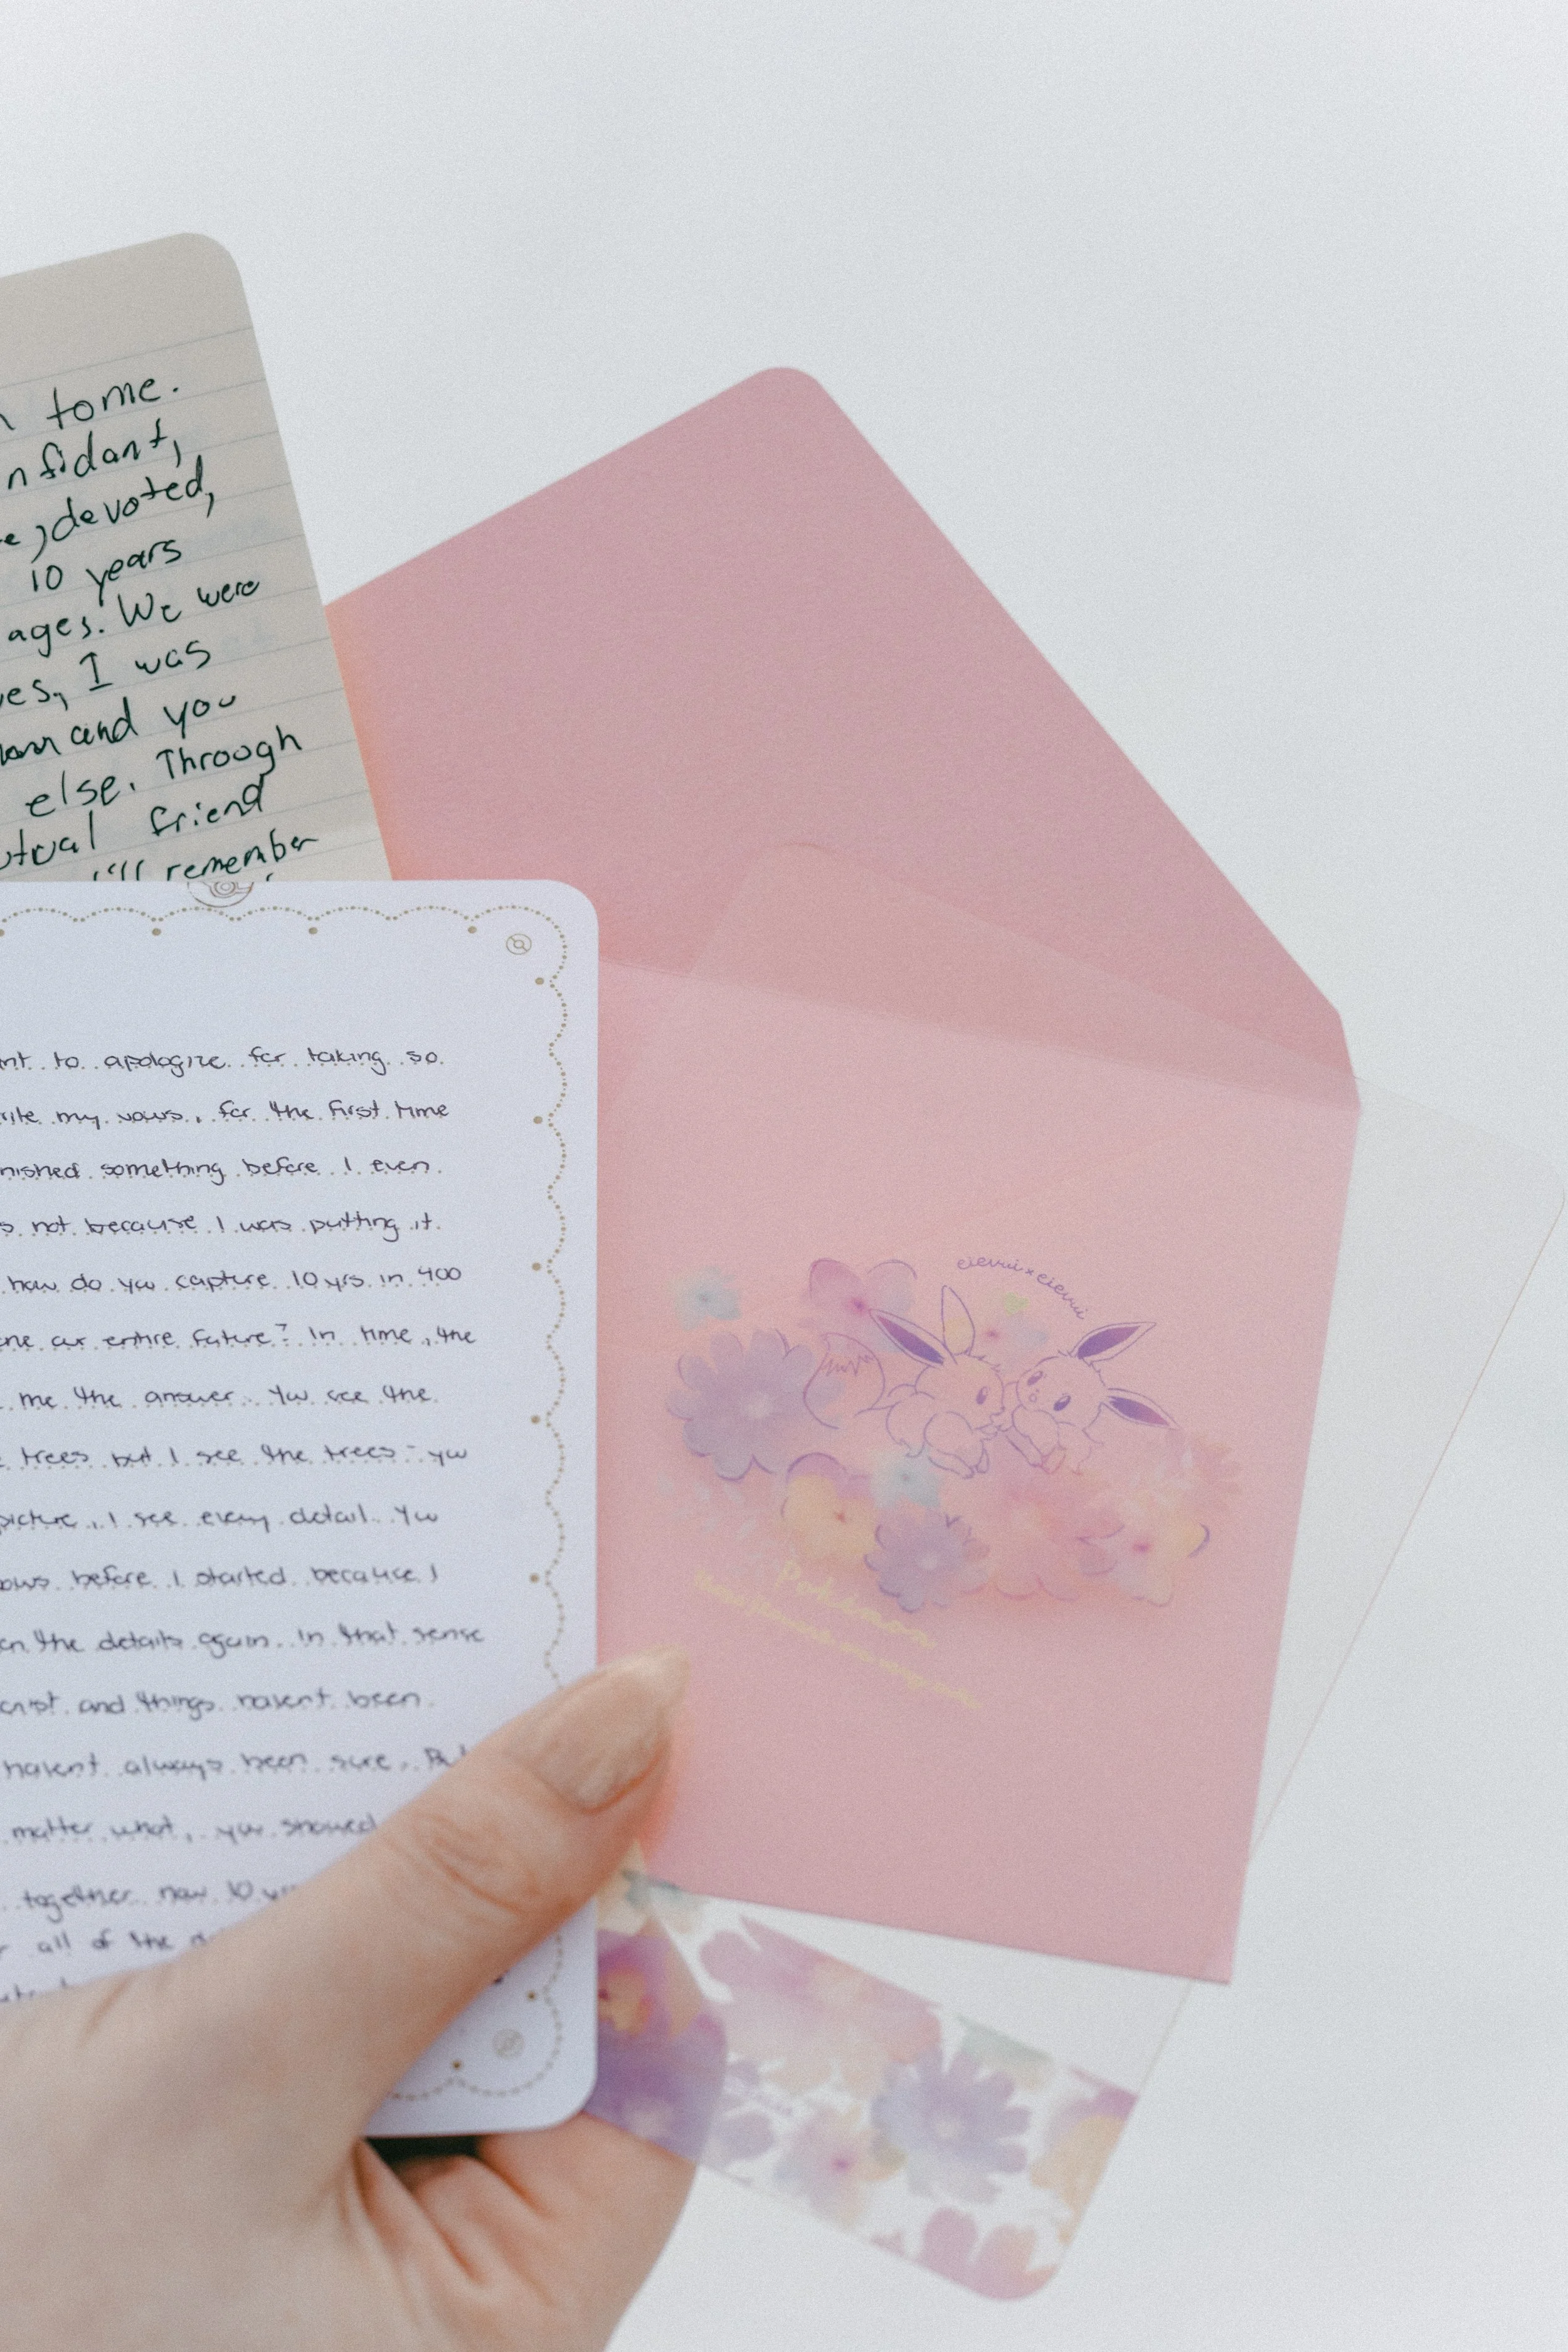 tome.
nfidant,
devoted,
10 years
ages. We were
es, I was
and you
else. Through
utual friend
I'll remember
nt to apologize for taking so
rite my vows, for the first time
nished something before I even
s not because I was putting it
how do you capture 10 yrs in 400
ne our entire future? In time, the
me the answer. You see the
trees but I see the trees - you
picture, I see every detail. You
ows before I started because I
en the details again. In that sense
onist and things havent been
havent always been sure. But
matter what, you showed
together now 10 yrs
all of the
eievui x eievui
Pokémon